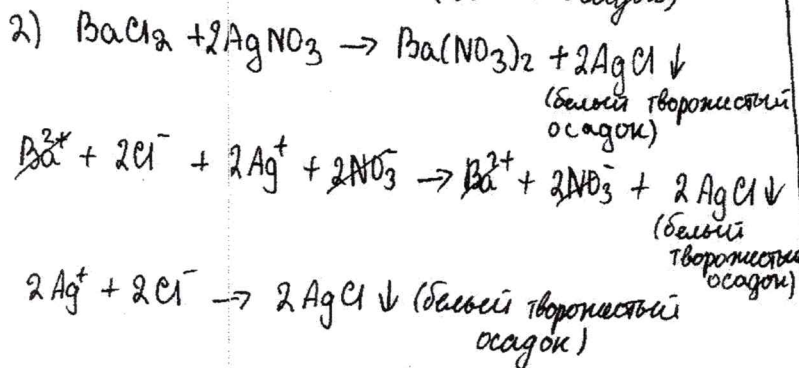 2) BaCl₂ + 2AgNO₃ → Ba(NO₃)₂ + 2AgCl ↓
(белый творожистый
осадок)
Ba²⁺ + 2Cl⁻ + 2Ag⁺ + 2NO₃⁻ → Ba²⁺ + 2NO₃⁻ + 2AgCl ↓
(белый
творожистый
осадок)
2Ag⁺ + 2Cl⁻ → 2AgCl ↓ (белый творожистый
осадок)